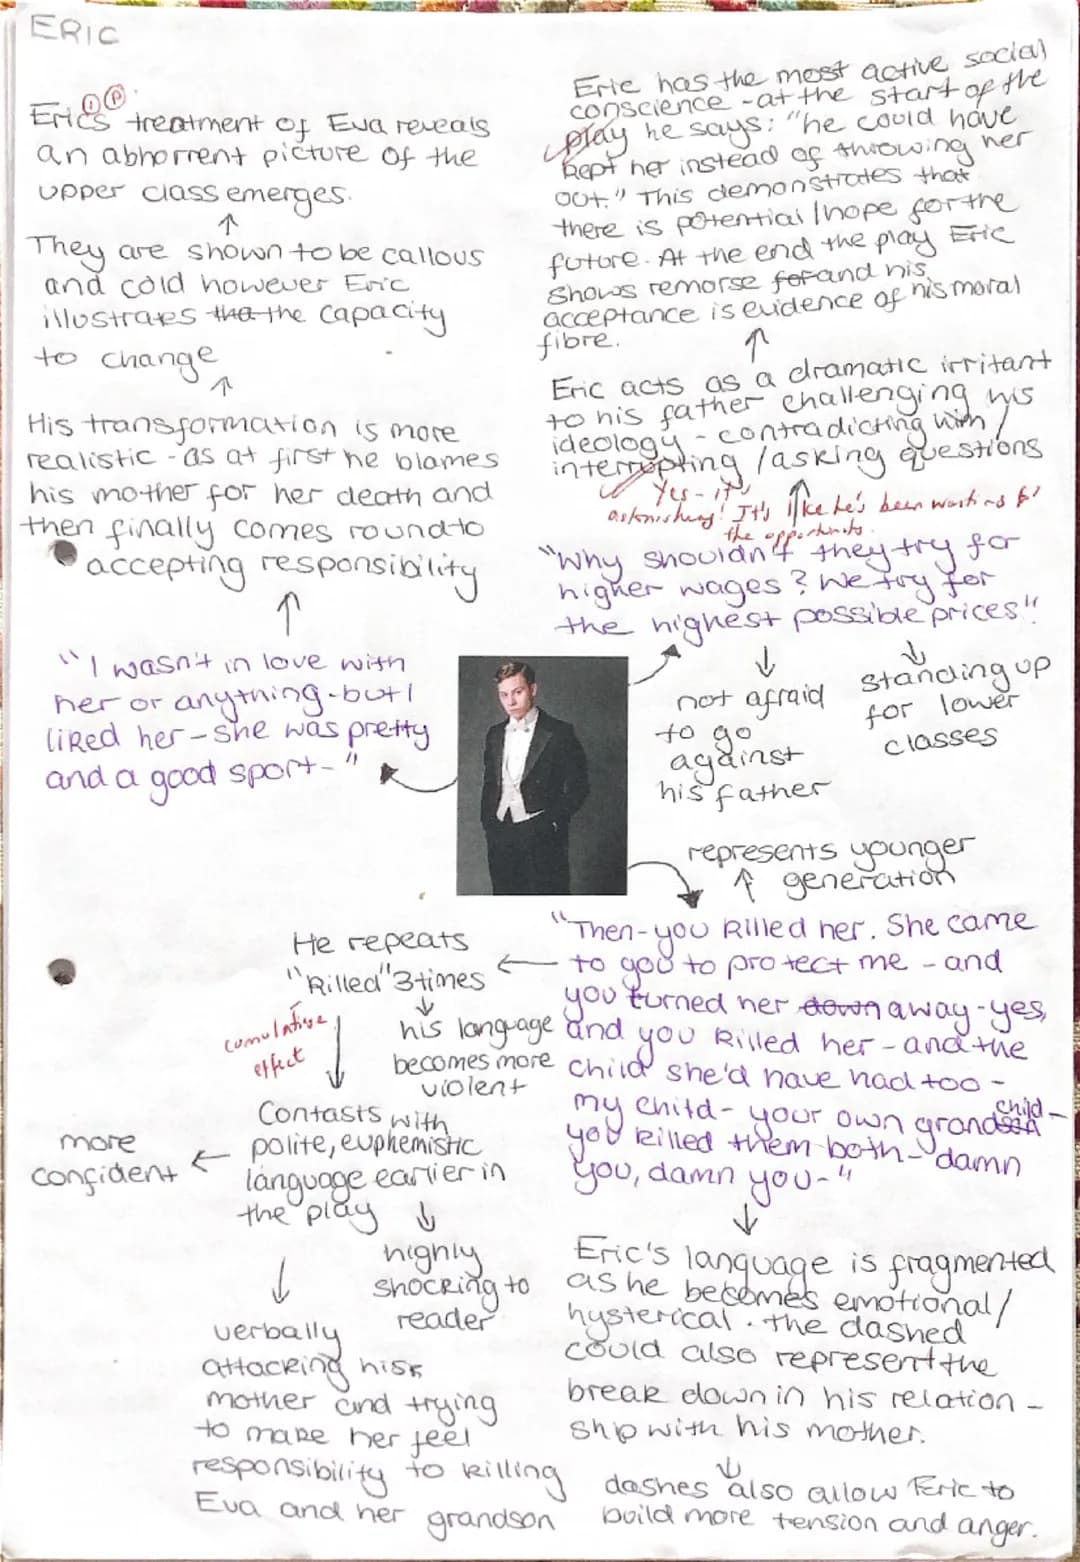 ERIC
Eric's treatment of Eva reveals
an abhorrent picture of the
upper class emerges.
They are shown to be callous
and cold however Eric
illustrates tha the capacity
to change
His transformation is more
realistic - as at first he blames
his mother for her death and
then finally comes round to
accepting responsibility
"I wasn't in love with
her or anything - but I
liked her - she was pretty
and a good sport - "
Eric has the most active social
conscience - at the start of the
play he says: "he could have
kept her instead of throwing her
out." This demonstrates that
there is potential / hope for the
future. At the end the play Eric
shows remorse for and his
acceptance is evidence of his moral
fibre.
Eric acts as a dramatic irritant
to his father challenging his
ideology - contradicting with /
interrupting / asking questions
Yes - it's
astonishing! It's like he's been waiting for
the opportunity.
"Why shouldn't they try for
higher wages? We try for
the highest possible prices"
not afraid
to go
against
his father
standing up
for lower
classes
represents younger
generation
"Then - you killed her. She came
to you to protect me - and
you turned her down away - yes,
and you killed her - and the
child she'd have had too -
my child - your own grandson child -
you killed them both - damn
you, damn you - "
He repeats
"killed" 3 times
his language
becomes more
violent
cumulative
effect
Contasts with
polite, euphemistic
language earlier in
the play
more
confident
highly
shocking to
reader
verbally
attacking his
mother and trying
to make her feel
responsibility to killing
Eva and her grandson
Eric's language is fragmented
as he becomes emotional /
hysterical. the dashed
could also represent the
break down in his relation -
ship with his mother.
dashes also allow Eric to
build more tension and anger.